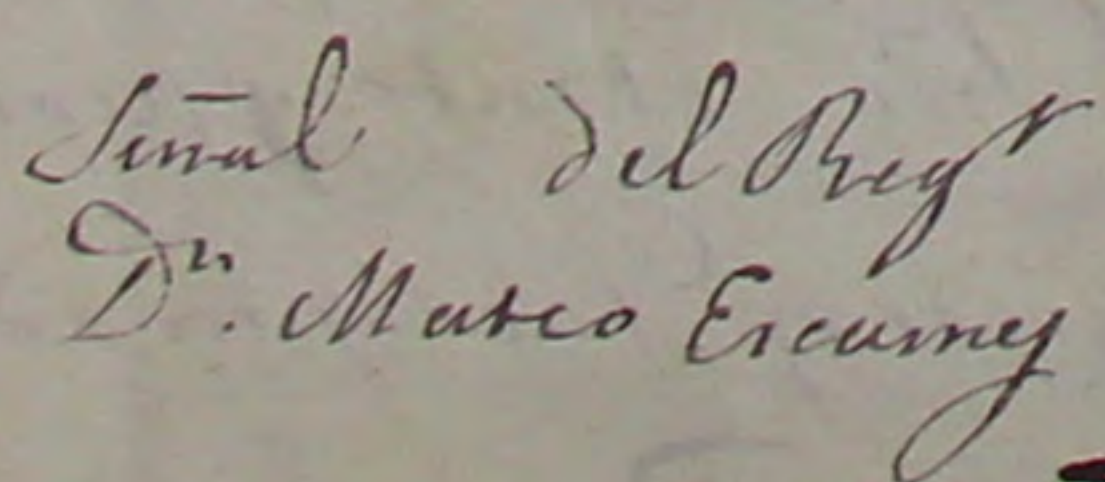 Señal del Regr
Dn. Mateo Escamez